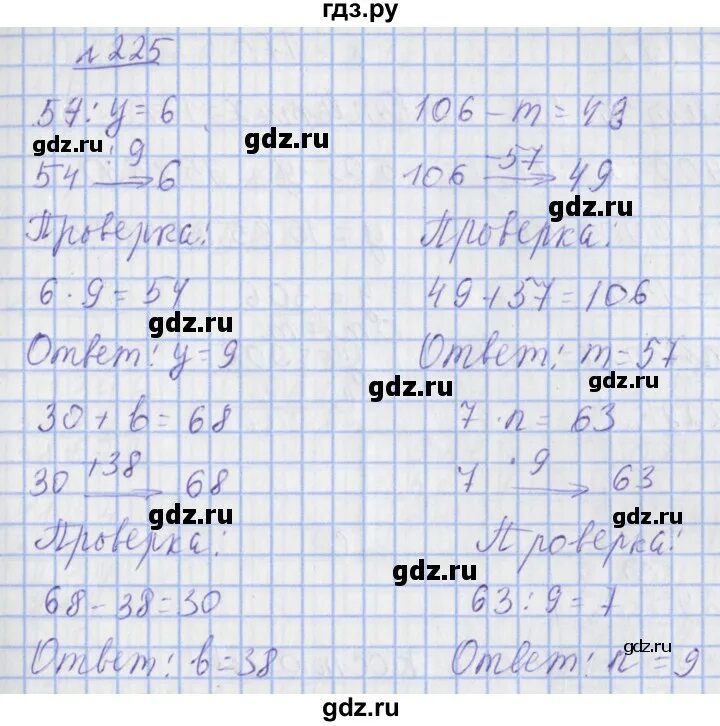 гдз.ру
№225
54 : y = 6
54 : 9 → 6
Проверка:
6 · 9 = 54
Ответ: y = 9
30 + b = 68
30 +38 → 68
Проверка:
68 - 38 = 30
Ответ: b = 38
106 - m = 49
106 -57 → 49
Проверка:
49 + 57 = 106
Ответ: m = 57
7 · n = 63
7 · 9 → 63
Проверка:
63 : 9 = 7
Ответ: n = 9
gdz.ru
gdz.ru
gdz.ru
gdz.ru
gdz.ru
gdz.ru
gdz.ru
gdz.ru
gdz.ru
gdz.ru
gdz.ru